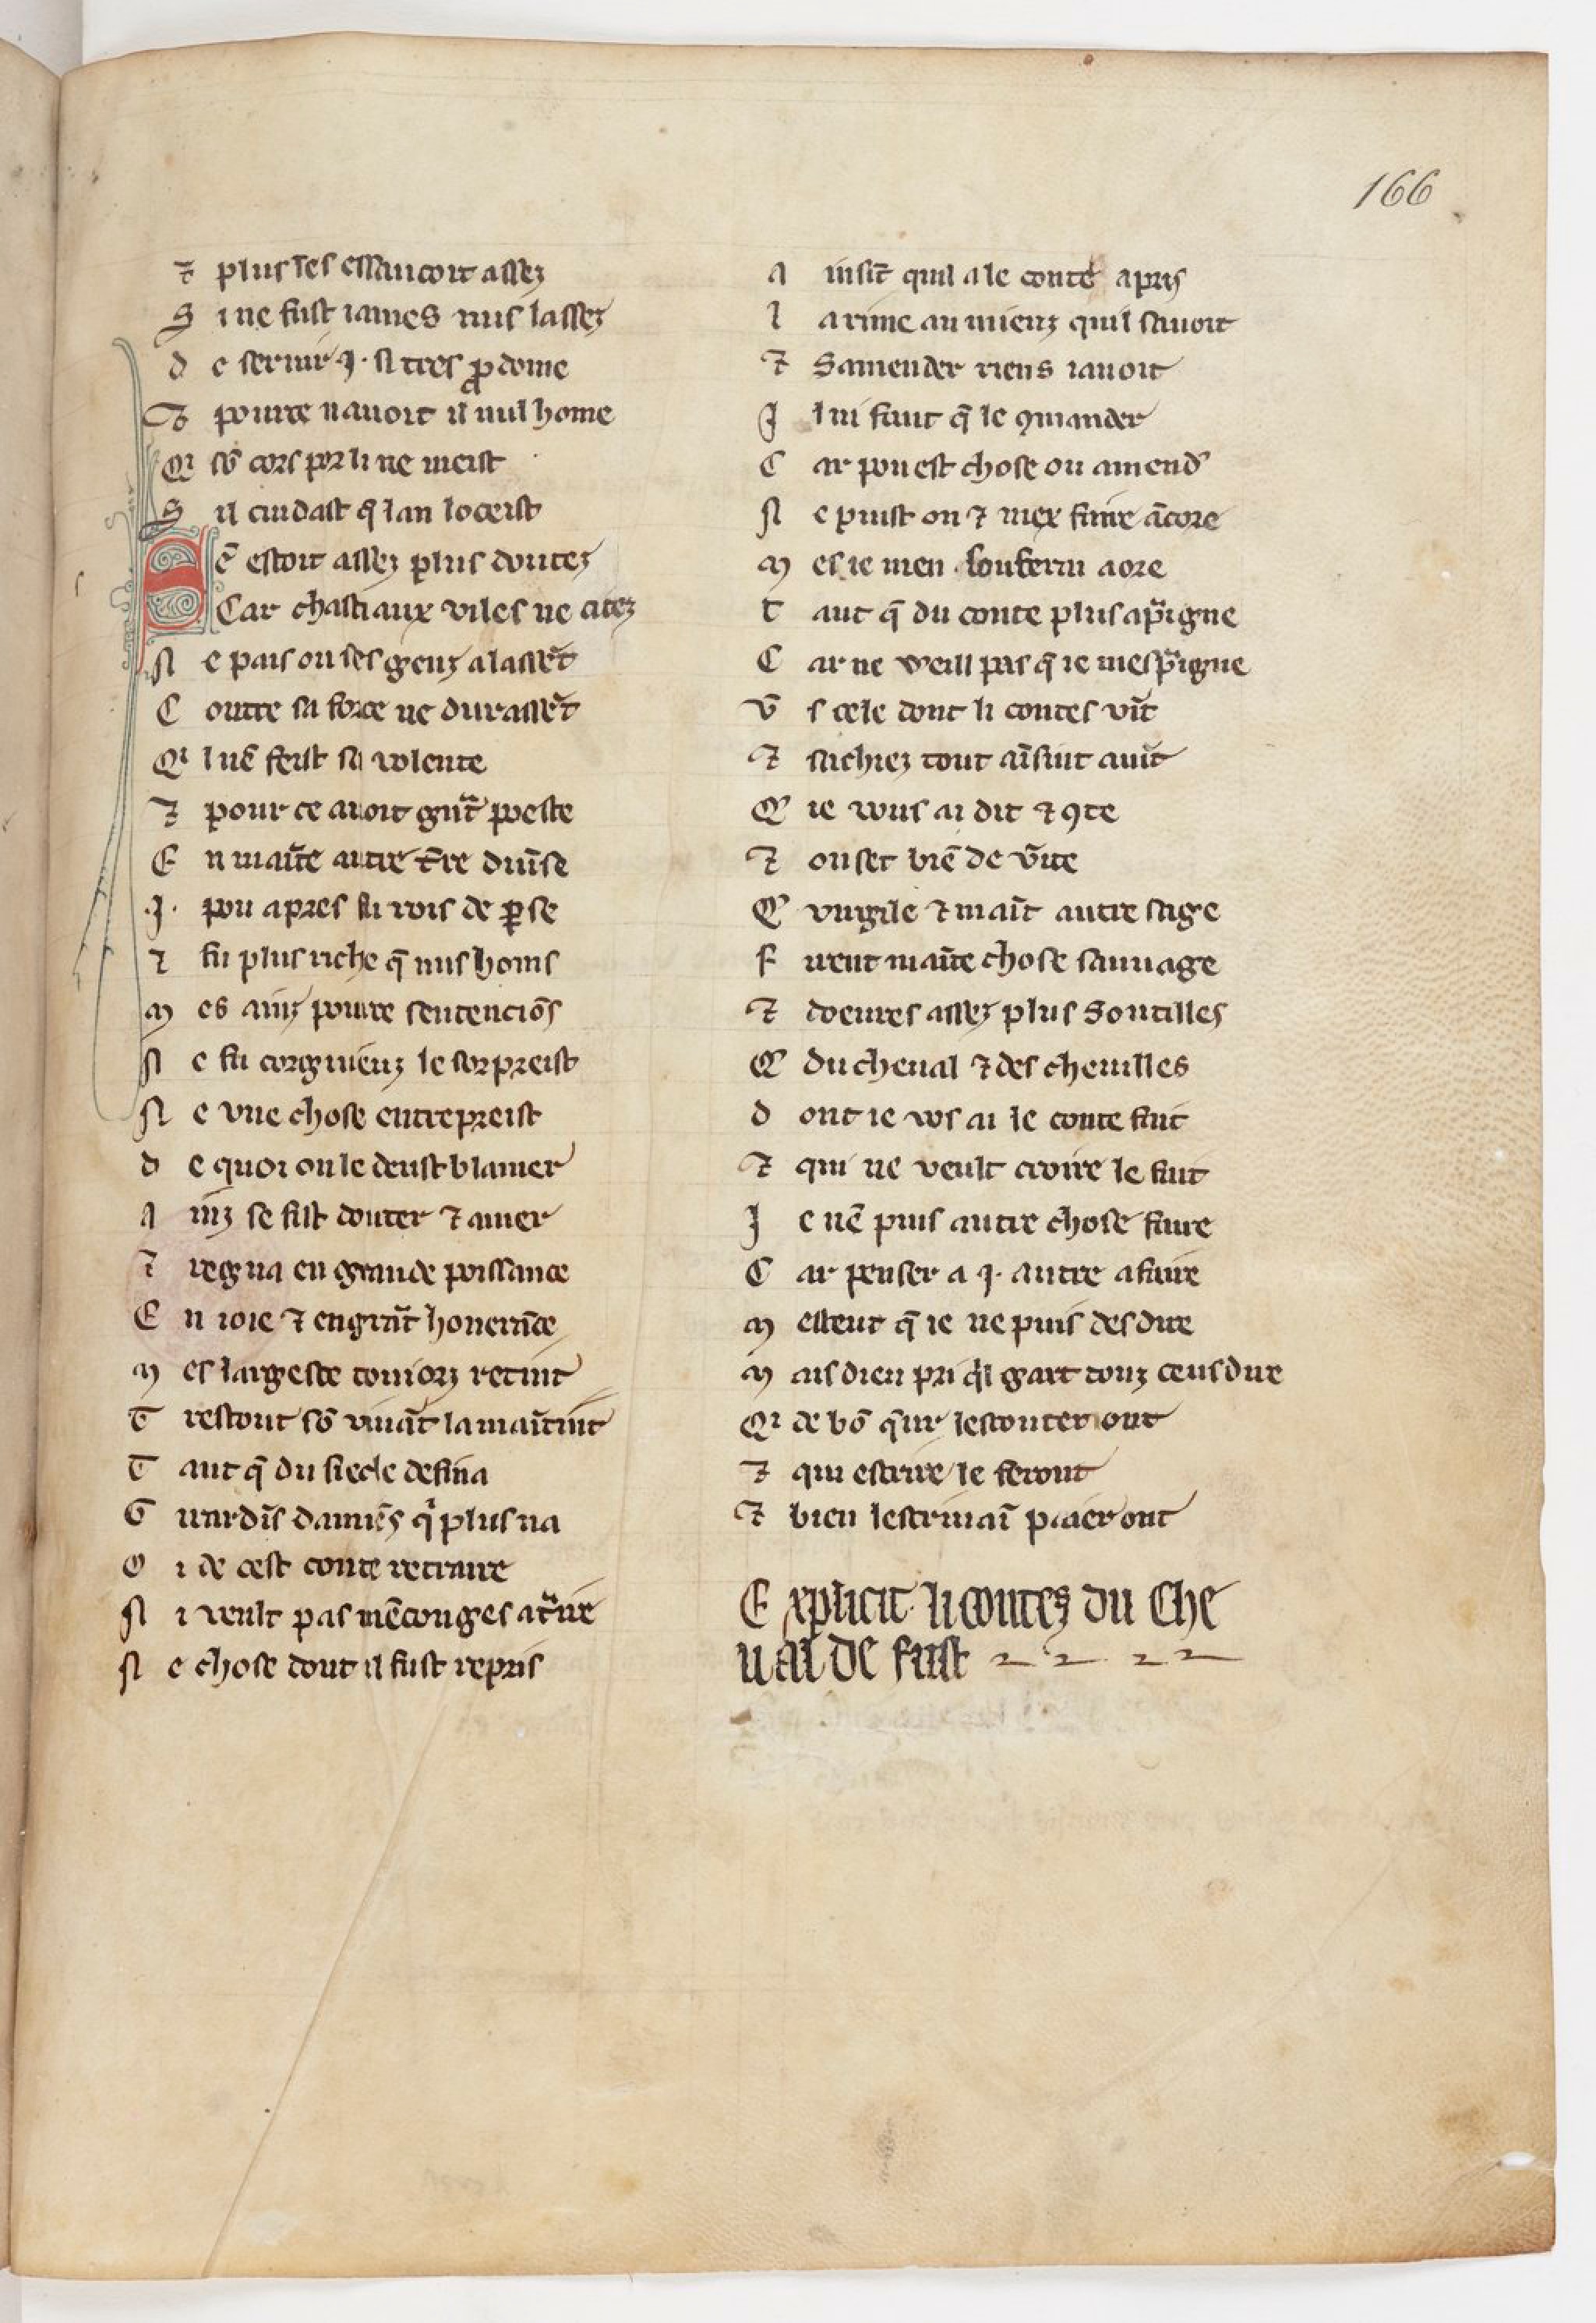 166
⁊ plus les essaucoit assez
S i ne fust iames nus lassez
d e seruir .j. si tres ꝓdome
⁊ poure nauoit il nul home
Q̕ sõ cors por li ne meist
S il cuidast q̃ lan loceist
S ẽ estoit assez plus doutez
Car chastiaux viles ne citez
N e pais ou ses genz alassẽt
C ontre sa force ne durassẽt
Qi l nẽ feist sa volente
⁊ pour ce auoit gñt poeste
E n mañte autre t̃re diũse
.j. pou apres fu rois de ꝑse
⁊ fu plus riche q̃ nus homs
m es ainz poure sentenciõs
N e fu corg mienz le sorpreist
N e vne chose entrepreist
d e quoi on le deust blamer
A inz se fist douter ⁊ amer
⁊ regna en grande poissance
E n ioie ⁊ en grãt honerãce
m es largesce touiorz retint
T restout sõ viuãt la maĩtint
T ant q̃ du siecle defina
G
O i de cest conte retraire
N i veult pas mẽconges at̃ire
N e chose dont il fust repris
A insĩt quil a le conte apris
l a rime au mienz quil sauoit
⁊ Samender riens i auoit
J l ni faut q̃ le ꝯmander
C ar pou est chose ou amend̕
N e puist on ⁊ mex faire ãcore
m es ie men souferrai aore
T ant q̃ du conte plus ap̃igne
C ar ne weill pas q̃ ie mesp̃igne
v̄ s cele dont li contes vĩt
⁊ sachiez tout aĩsint auĩt
Q̕ ie vous ai dit ⁊ ꝯte
⁊ on set biẽ de v̄ite
Q̕ virgile ⁊ maĩt autre sage
F irent maĩte chose sauuage
⁊ doeures assez plus soutilles
Q̕ du cheual ⁊ des cheuilles
d ont ie vos ai le conte fait
⁊ qui ne veult croire le fait
J e nẽ puis autre chose faire
C ar penser a .j. autre afaire
m esteut q̃ ie ne puis desdire
m ais dieu pri q̃l gart touz ceus dire
Qi de bõ q̃ur lescouteront
⁊ qui escrire le feront
⁊ bien lescriuaĩ paieront
Explicit li contes du Che
ual de fust